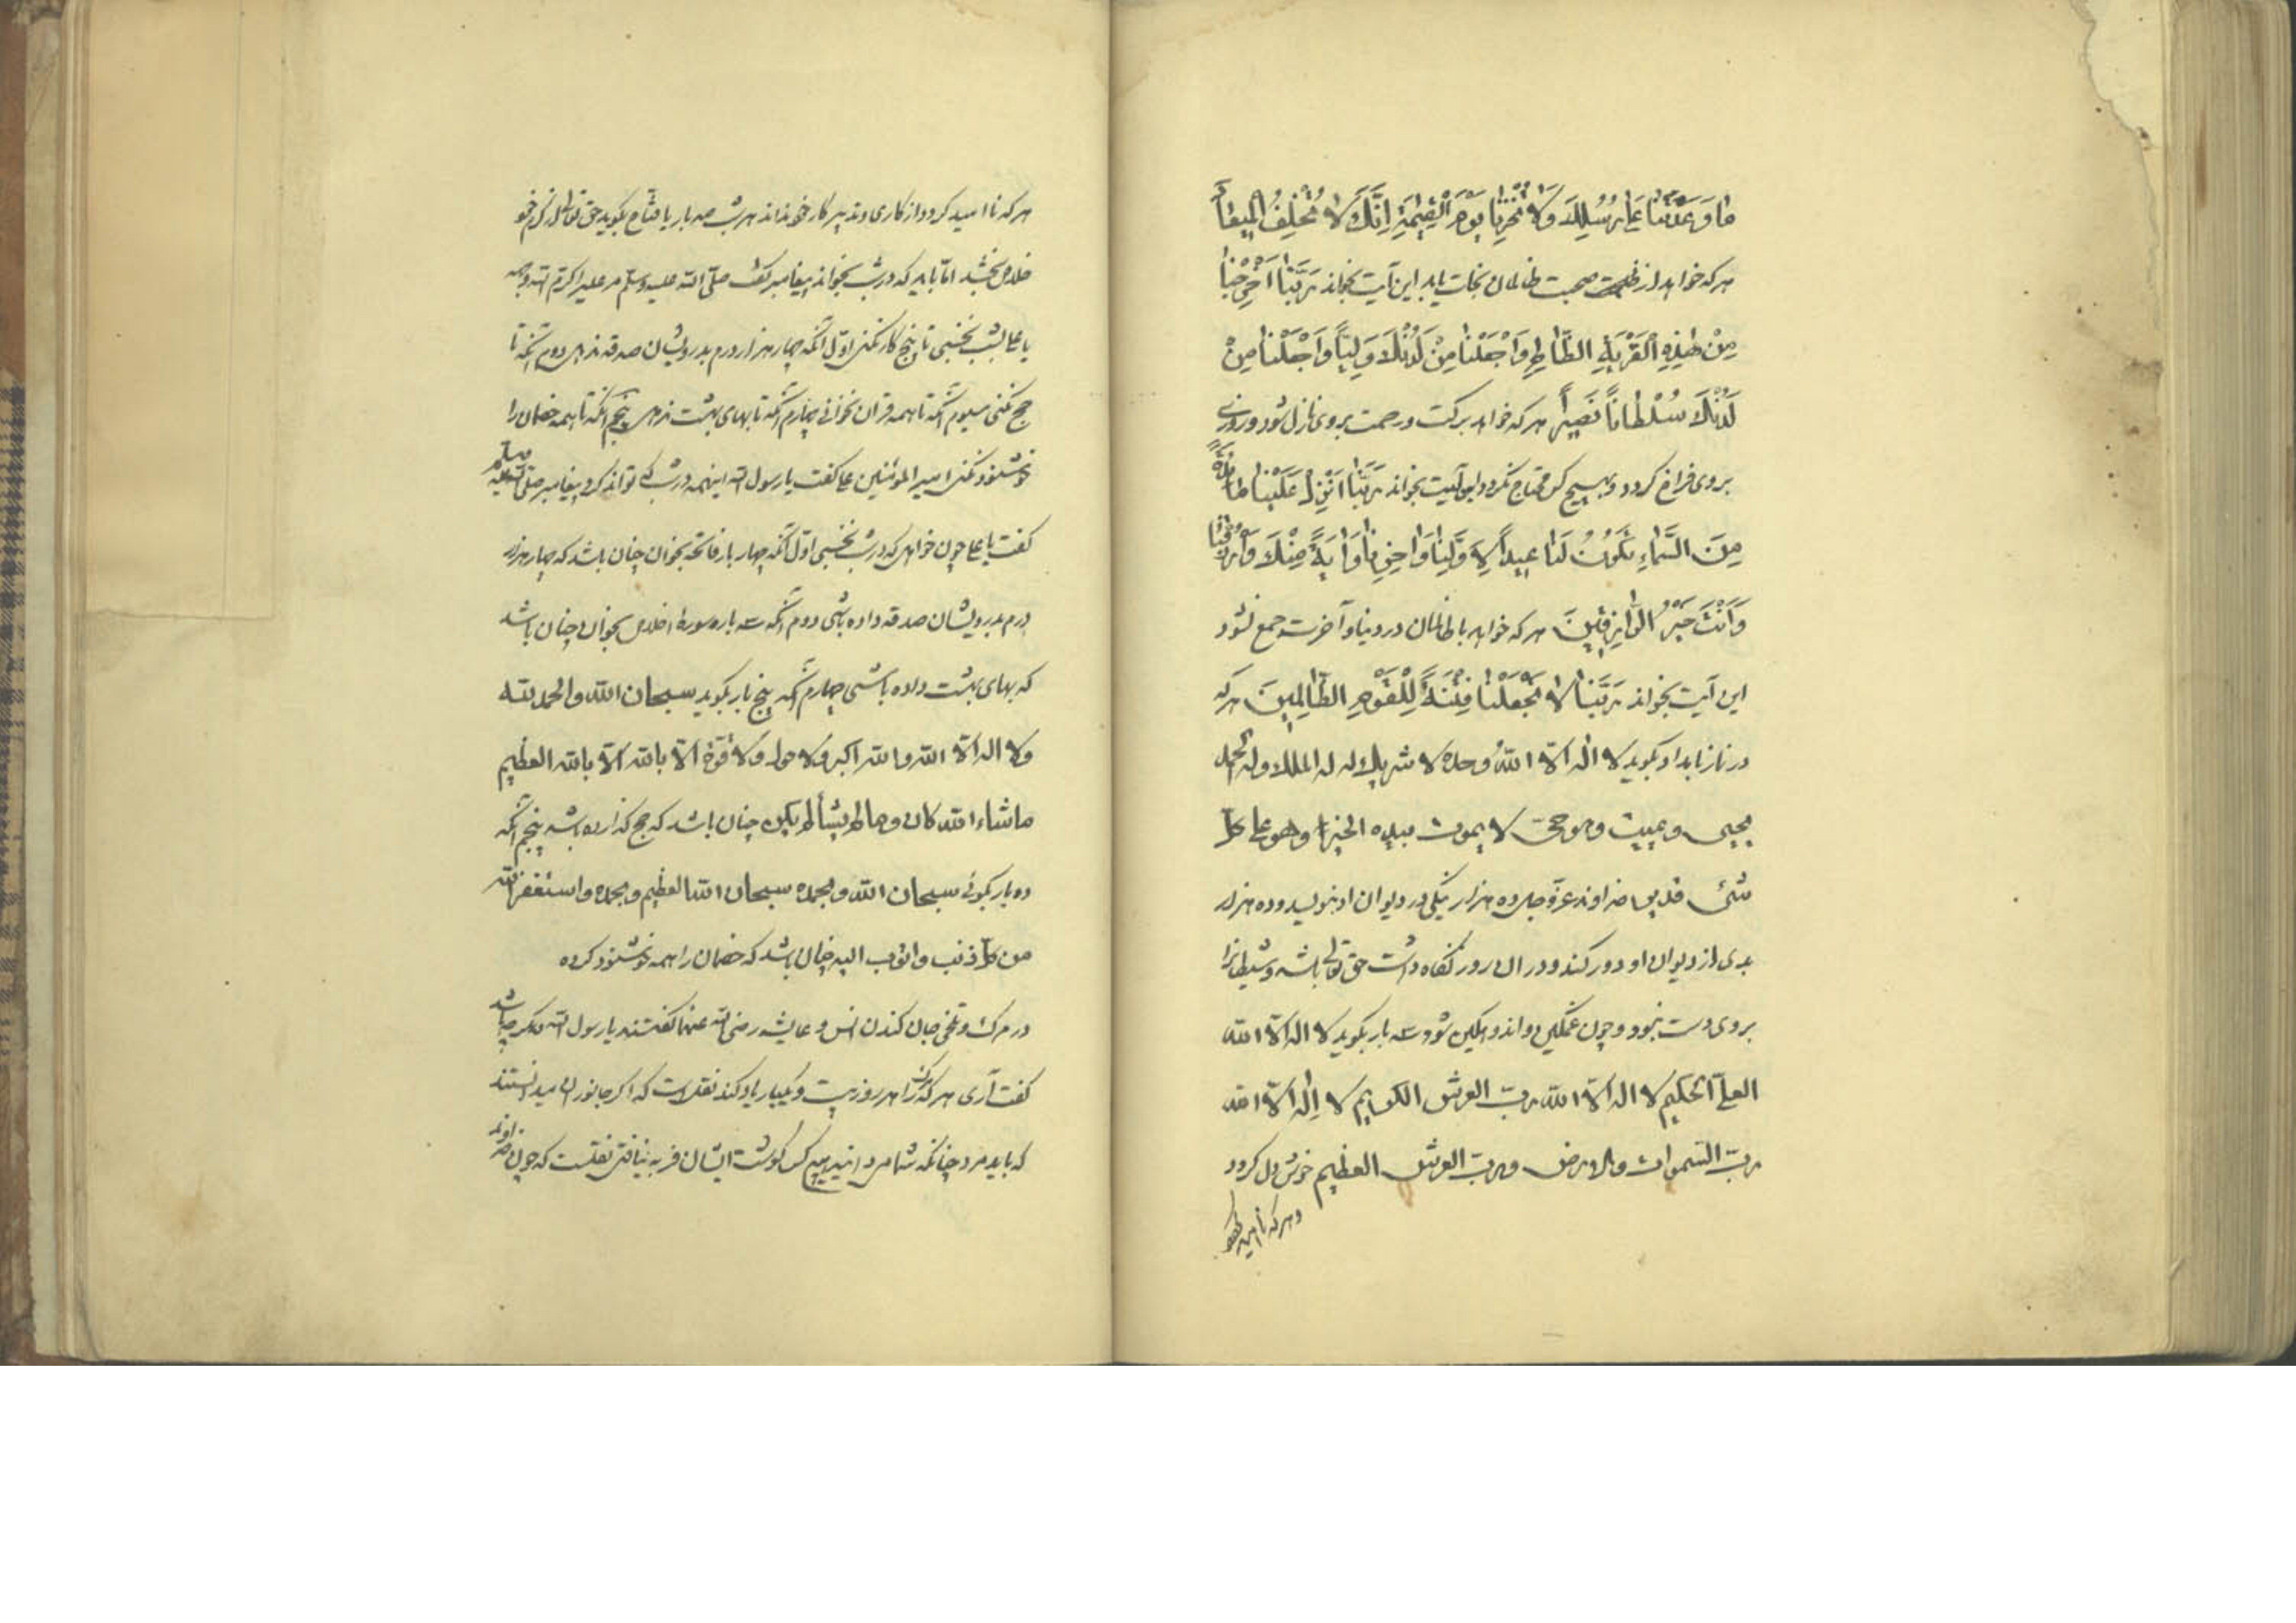 ما وَعَدْتَنا عَلی رُسُلِكَ وَلا تُخْزِنا یَوْمَ الْقِیٰمَةِ اِنَّكَ لا تُخْلِفُ الْمیعاٰد
هر که خواهد از ظلمت صحبت ظالمان نجات یابد این آیت بخواند رَبَّنا اَخْرِجْنا
مِنْ هٰذِهِ الْقَرْیَةِ الظّالِمِ وَاجْعَلْنا مِنْ لَدُنْكَ وَلِیّاً وَاجْعَلْنا مِنْ
لَدُنْكَ سُلْطاناً نَصیراً هر که خواهد برکت و رحمت بروی نازل شود و روزی
بروی فراخ کردد و بهیچ کس محتاج نکردد این آیت بخواند رَبَّنا اَنْزِلْ عَلَیْنا مائِدَةً
مِنَ السَّماءِ تَكُونُ لَنا عیداً لِاَوَّلِنا وَاٰخِرِنا وَاٰیَةً مِنْكَ وَارْزُقْنا
وَاَنْتَ خَیْرُ الرّازِقینَ هر که خواهد با ظالمان در دنیا و آخرت جمع نشود
این آیت بخواند رَبَّنا لا تَجْعَلْنا فِتْنَةً لِلْقَوْمِ الظّالِمینَ هر که
در نماز بامداد بکوید لا اله الّا اللّهُ وحده لا شریك له له الملك وله الحمد
یحیی ویمیت وهو حیّ لا یموت بیده الخیر وهو علی كلّ
شئ قدیر خداوند عزّ وجل ده هزار نیکی در دیوان او بنویسد و ده هزار
بدی از دیوان او دور کند و در ان روز نکاه داشت حق تعالی باشد و شیطانرا
بروی دست نبود و چون غمکین و اندوهکین شود سه بار بکوید لا اله الّا اللّه
العلیّ الحکیم لا اله الّا اللّه ربّ العرش الکریم لا اِله الّا اللّه
ربّ السّموات والارض وربّ العرش العظیم خوش دل کردد
و هر که ناامید
هر که ناامید کردد از کاری و تدبیر کار خود نداند هر شب صد بار یا فتّاح بکوید حق تعالی از کرم خود
خلاص بخشد امّا باید که در شب بخواند پیغامبر کفت صلّی اللّه علیه وسلّم مر علی را کرّم اللّه وجهه
یا علی بشب نخسبی تا پنج کار نکنی اوّل آنکه چهار هزار درم بدرویشان صدقه ندهی دوم آنکه تا
حج نکنی سیوم آنکه تا همه قرآن نخوانی چهارم آنکه تا بهای بهشت ندهی پنجم آنکه تا همه خصمان را
خوشنود نکنی امیر المؤمنین علی کفت یا رسول اللّه اینهمه در شب که تواند کرد پیغامبر صلّی اللّه علیه وسلّم
کفت یا علی چون خواهی که در شب نخسبی اوّل آنکه چهار بار فاتحه بخوان چنان باشد که چهار هزار
درم بدرویشان صدقه داده باشی دوم آنکه سه بار سورهٔ اخلاص بخوان چنان باشد
که بهای بهشت داده باشی چهارم آنکه پنج بار بکوید سبحان اللّه والحمد للّه
ولا اله الّا اللّه واللّه اکبر ولا حول ولا قوّة الّا باللّه الّا باللّه العظیم
ماشاء اللّه کان وما لم یشأ لم یکن چنان باشد که حج کذارده باشد پنجم آنکه
ده بار بکوئی سبحان اللّه وبحمده سبحان اللّه العظیم وبحمده واستغفر اللّه
من كلّ ذنب واتوب الیه چنان باشد که خصمان را همه خوشنود کرده
در مرك و تلخی جان کندن انس و عایشه رضی اللّه عنهما کفتند یا رسول اللّه
کفت آری هر که مرك را هر روز بیست و یکبار یاد کند نقلست که اکر جانوران میدانستند
که باید مرد چنانکه شما میدانید هیچ کس کوشت ایشان فربه نیافتی نقلست که چون خداوند